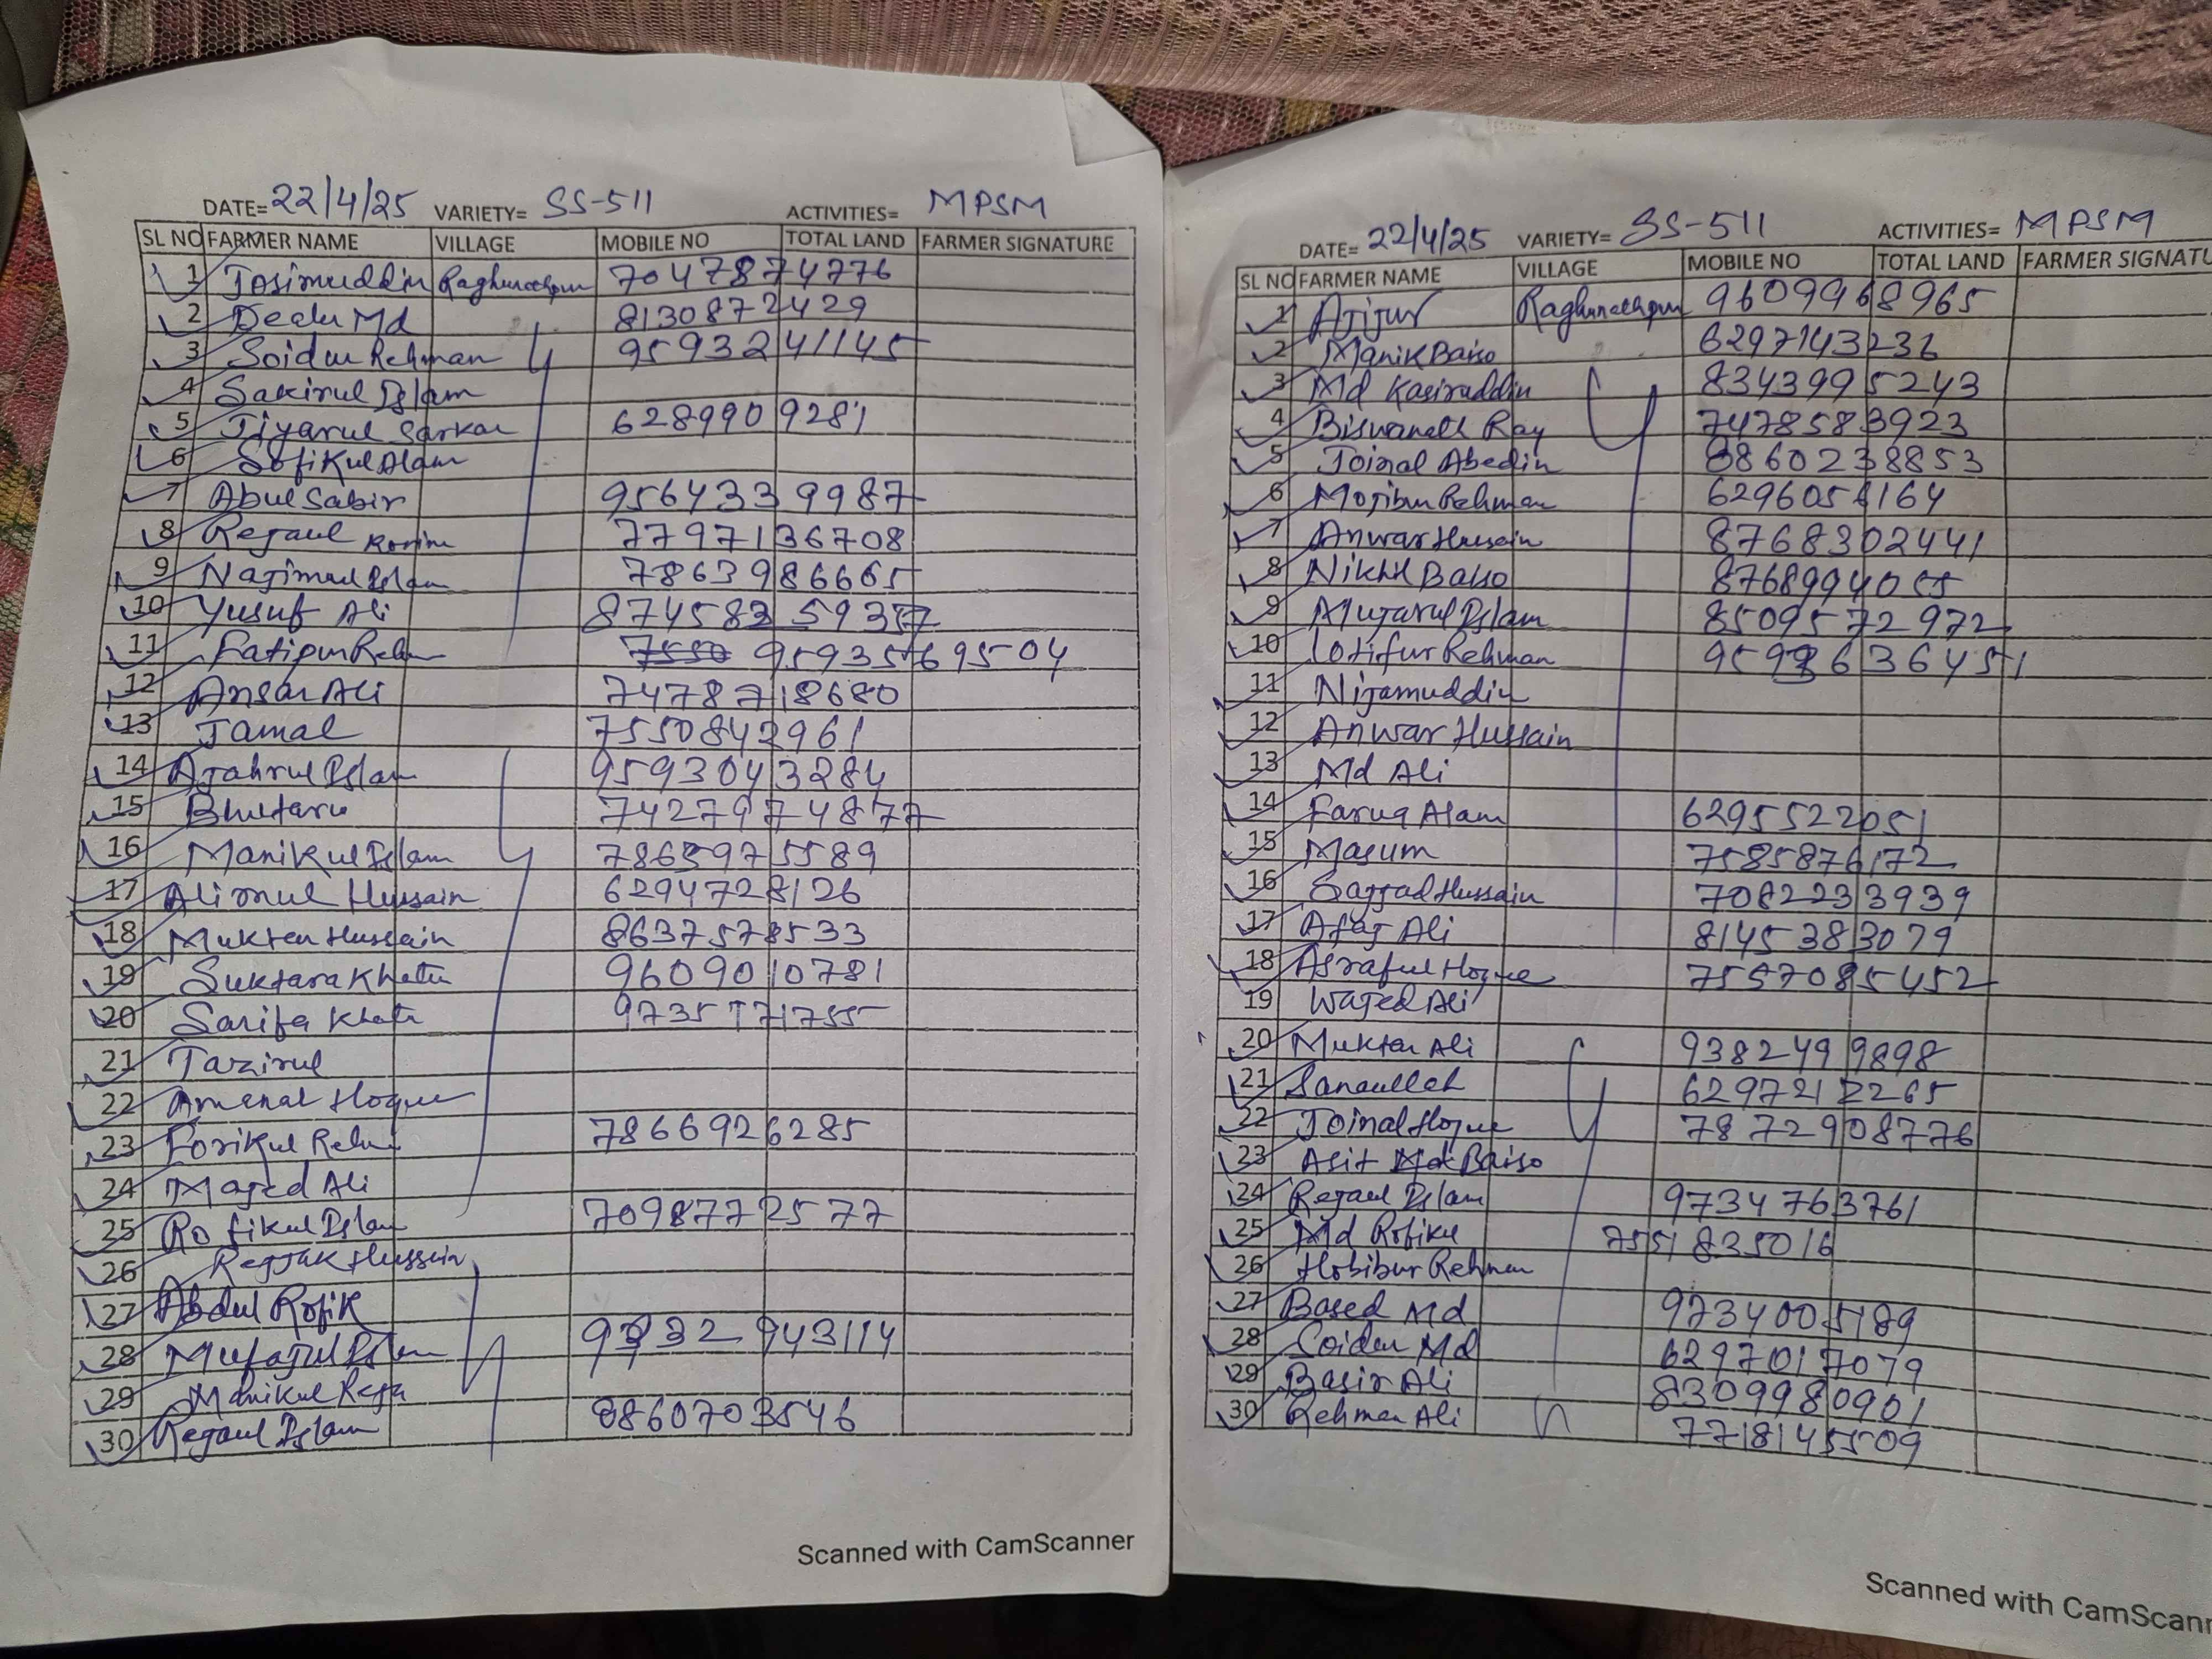 DATE= 22/4/25 VARIETY= SS-511 ACTIVITIES= MPSM
SL NO FARMER NAME VILLAGE MOBILE NO TOTAL LAND FARMER SIGNATURE
1 Josimuddin Raghunathpur 7047874776
2 Dealu Md 8130872429
3 Soidur Rehman 9593241145
4 Sakirul Islam
5 Jiyarul Sarkar 6289909281
6 Sofikul Alam
7 Abul Sabir 9564339987
8 Rejaul Korim 7797136708
9 Najimul Islam 7863986665
10 Yusuf Ali
11 9593569504
12 Ansar Ali 7478718680
13 Jamal 7550842961
14 Ajahrul Islam 9593043284
15 Bhutaru 7427974877
16 Manikul Islam
17 Alimul Hussain 6294728126
18 Muktar Hussain 8637578533
19 Suktara Khatu 9609010781
20 Sarifa Khatu
21 Tazirul
22 Amenal Hoque
23 Forikul Rehm 7866926285
24 Majed Ali
25 Rofikul Islam 7098772577
26 Rejjak Hussain
27 Abdul Rofik
28 Mufajul Islam 9732943114
29 Manikul Reja
30 Rejaul Islam 8860703546
Scanned with CamScanner
DATE= 22/4/25 VARIETY= SS-511 ACTIVITIES= MPSM
SL NO FARMER NAME VILLAGE MOBILE NO TOTAL LAND FARMER SIGNATU
1 Ajijur Raghunathpur 9609968965
2 Manik Baiso 6297143236
3 Md Kasiruddin 8343995243
4 Biswanath Ray 7478583923
5 Joinal Abedin 8860238853
6 Mojibur Rehman 6296056164
7 Anwar Hussain 8768302441
8 Nikhil Baiso 8768994055
9 Mujarul Islam 8509572972
10 Lotifur Rehman
11 Nijamuddin
12 Anwar Hussain
13 Md Ali
14 Faruq Alam 6295522051
15 Masum 7585876172
16 Sajjad Hussain 7082233939
17 Afaj Ali 8145383079
18 Asraful Hoque 7557085452
19 Wajed Ali
20 Muktar Ali 9382499898
21 Sanaullah 6297212265
22 Joinal Hoque 7872908776
23 Asit Baiso
24 Rejaul Islam 9734763761
25 Md Rofikul 7551835016
26 Hobibur Rehman
27 Based Md 9734005189
28 Soidur Md 6297017079
29 Basir Ali 8309980901
30 Rehman Ali 7718145509
Scanned with CamScann